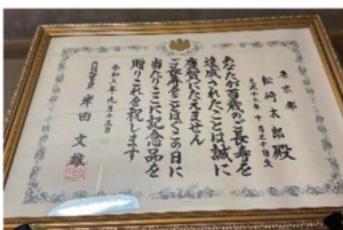 東京都
松崎太郎殿
大正十年十月三十日生
あなたが百歳のご長寿を
達成されたことは誠に
慶賀にたえません
ご長寿をことほぐこの日に
当たりここに記念品を
贈りこれを祝します
令和三年九月十五日
内閣総理大臣
岸田文雄